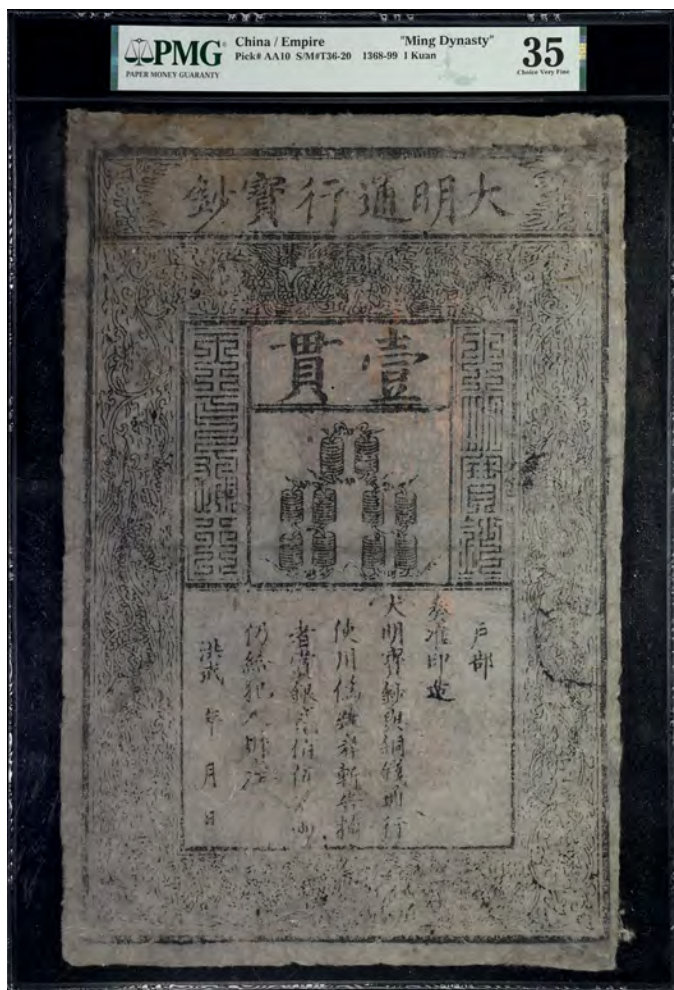 PMG
PAPER MONEY GUARANTY
China / Empire "Ming Dynasty"
Pick# AA10 S/M#T36-20 1368-99 1 Kuan
35
Choice Very Fine
大明通行寶鈔
壹貫
戶部
奏准印造
大明寶鈔與銅錢通行
使用偽造者斬告捕
者賞銀貳佰伍拾兩
仍給犯人財產
洪武 年 月 日